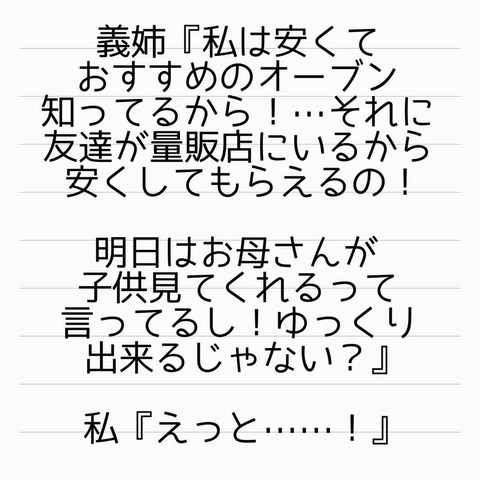 義姉『私は安くて
おすすめのオーブン
知ってるから！…それに
友達が量販店にいるから
安くしてもらえるの！
明日はお母さんが
子供見てくれるって
言ってるし！ゆっくり
出来るじゃない？』
私『えっと……！』